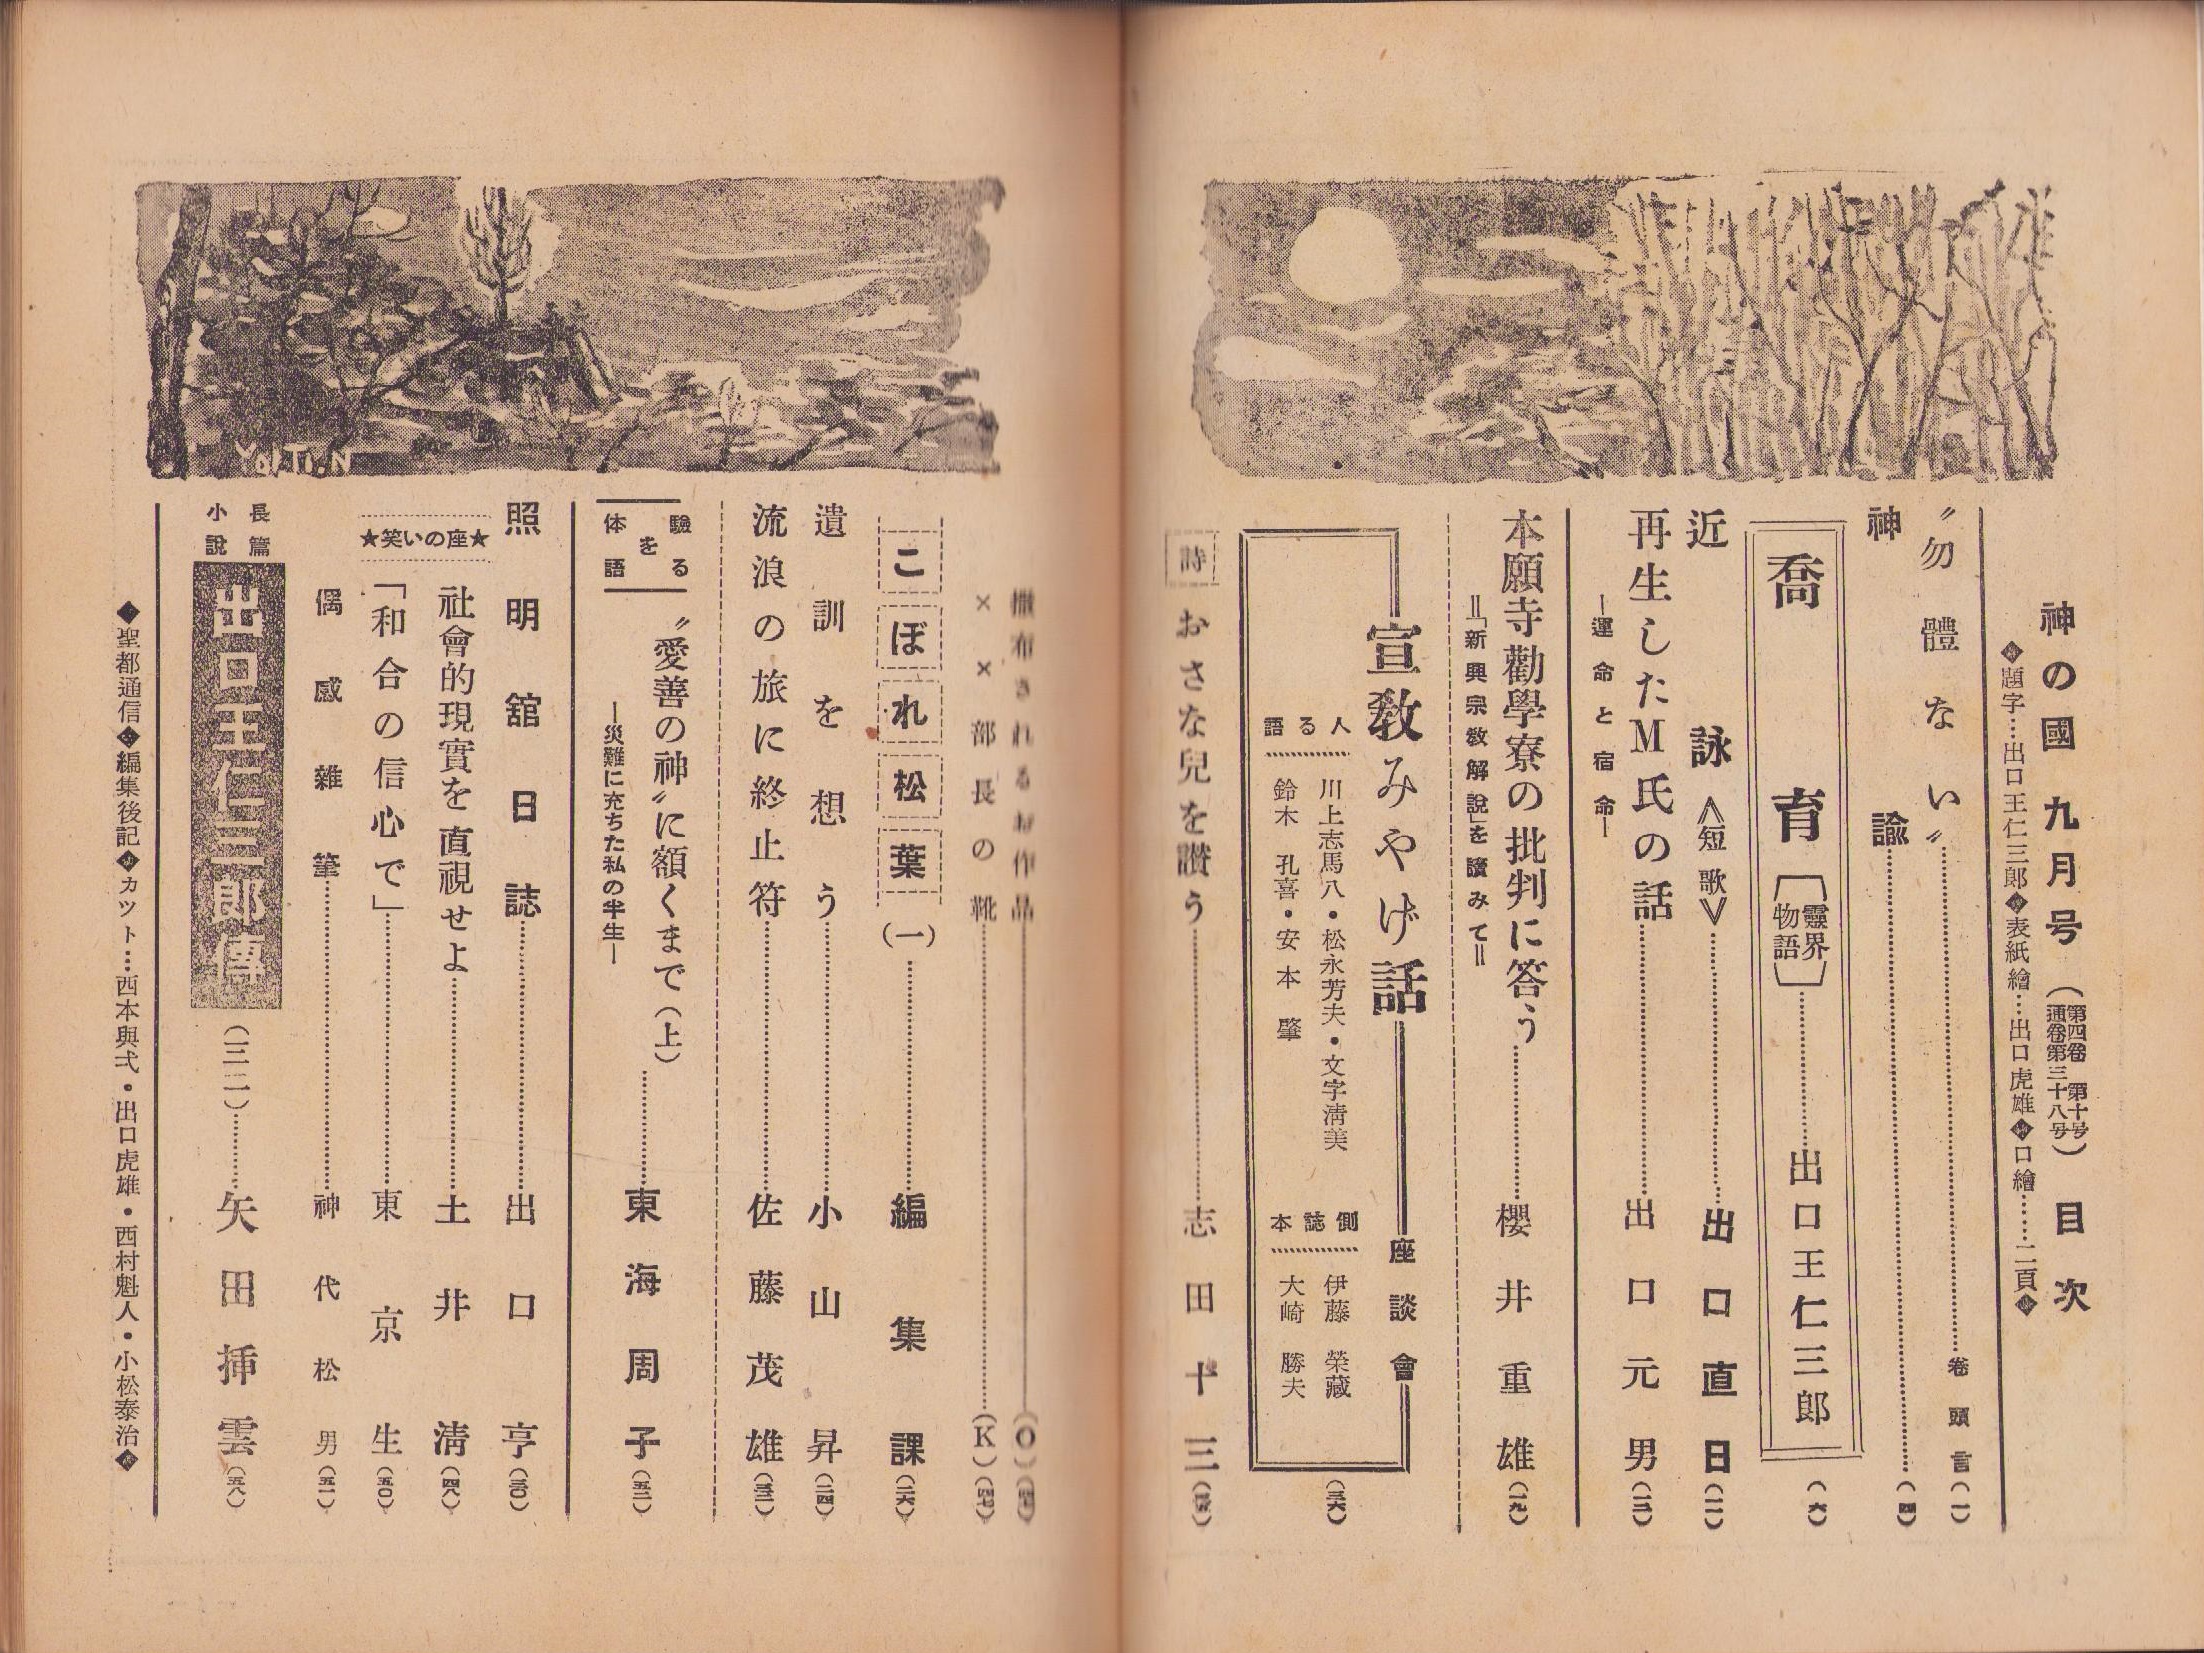 神の國 九月号 (第四卷 第十号 通卷第三十八号) 目次
◆題字…出口王仁三郎◆表紙繪…出口虎雄◆口繪……二頁◆
〝勿體ない〟 卷頭言 (一)
神諭 (四)
喬育 〔靈界物語〕 出口王仁三郎 (六)
近詠 ≪短歌≫ 出口直日 (一一)
再生したM氏の話 出口元男 (一二)
―運命と宿命―
本願寺勸學寮の批判に答う 櫻井重雄 (一九)
=「新興宗敎解說」を讀みて=
宣敎みやげ話 座談會 (三六)
語る人
川上志馬八・松永芳夫・文字淸美
鈴木孔喜・安本肇
本誌側
伊藤榮藏
大崎勝夫
詩 おさな兒を讃う 志田十三
撒布されるお作品 (O)
××部長の靴 (K) (四七)
こぼれ松葉 (一) 編集課 (二六)
遺訓を想う 小山昇 (二四)
流浪の旅に終止符 佐藤茂雄 (三三)
体驗を語る
〝愛善の神〟に額くまで(上) 東海周子 (五二)
―災難に充ちた私の半生―
照明舘日誌 出口亨 (三〇)
社會的現實を直視せよ 土井淸 (四八)
★笑いの座★
「和合の信心で」 東京生 (五〇)
偶感雜筆 神代松男 (五一)
長篇小說 出口王仁三郎傳 (三二) 矢田挿雲 (五八)
◆聖都通信◆編集後記◆カット…西本與弍・出口虎雄・西村魁人・小松泰治◆
YOITI.N